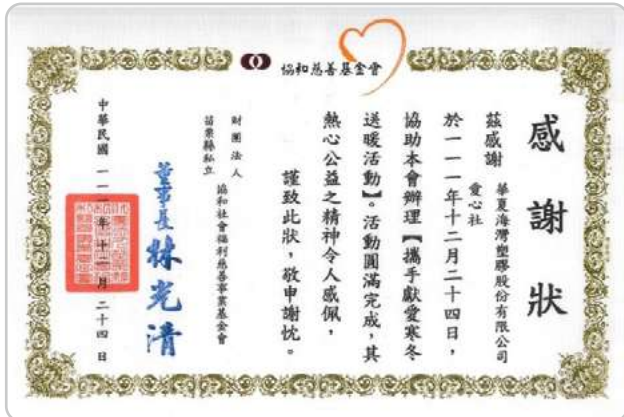 協和慈善基金會
感謝狀
茲感謝 華夏海灣塑膠股份有限公司
愛心社
於一一一年十二月二十四日，
協助本會辦理【攜手獻愛寒冬
送暖活動】。活動圓滿完成，其
熱心公益之精神令人感佩，
謹致此狀，敬申謝忱。
財團法人
苗栗縣私立
協和社會福利慈善事業基金會
董事長 林光清
中華民國一一一年十二月二十四日